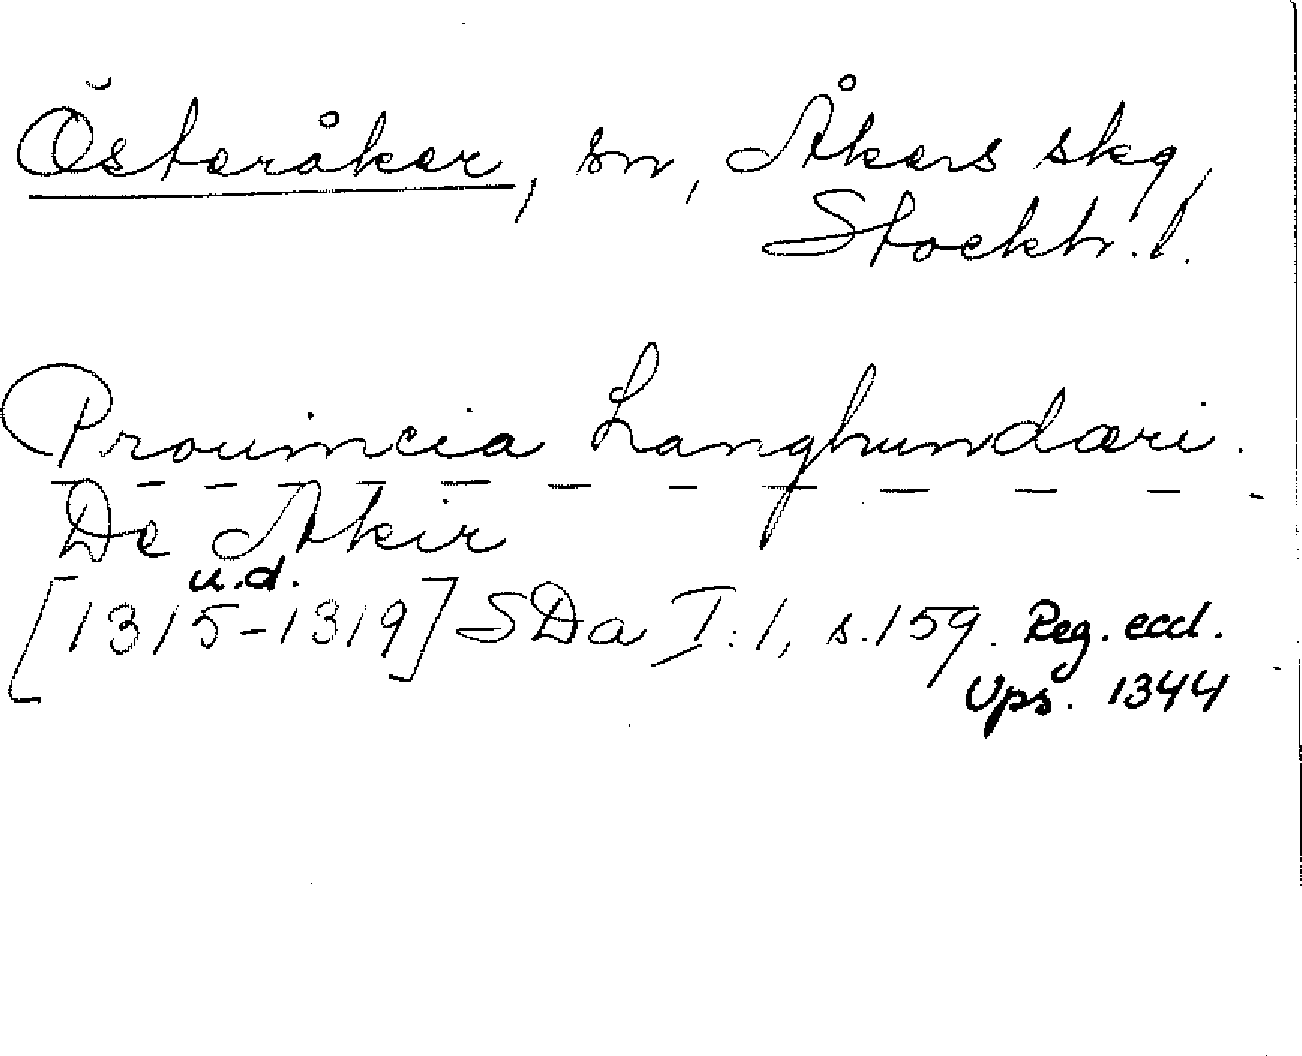 Österåker, sn, Åkers skg,
Stockh. l.
Prouincia Langhundæri.
— — — — — — — — — —
De Akir
u.d.
[1315-1319] SDa I:1, s.159. Reg. eccl.
Ups. 1344